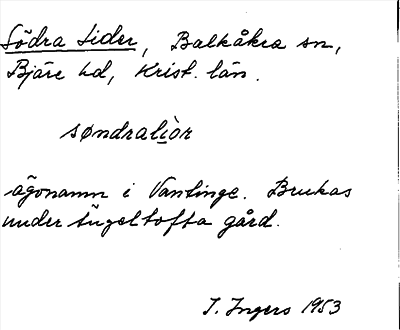 Södra Lider, Balkåkra sn,
Bjäre hd, Krist. län.
søndraliòr
ägonamn i Vantinge. Brukas
under Ängeltofta gård.
I. Ingers 1953